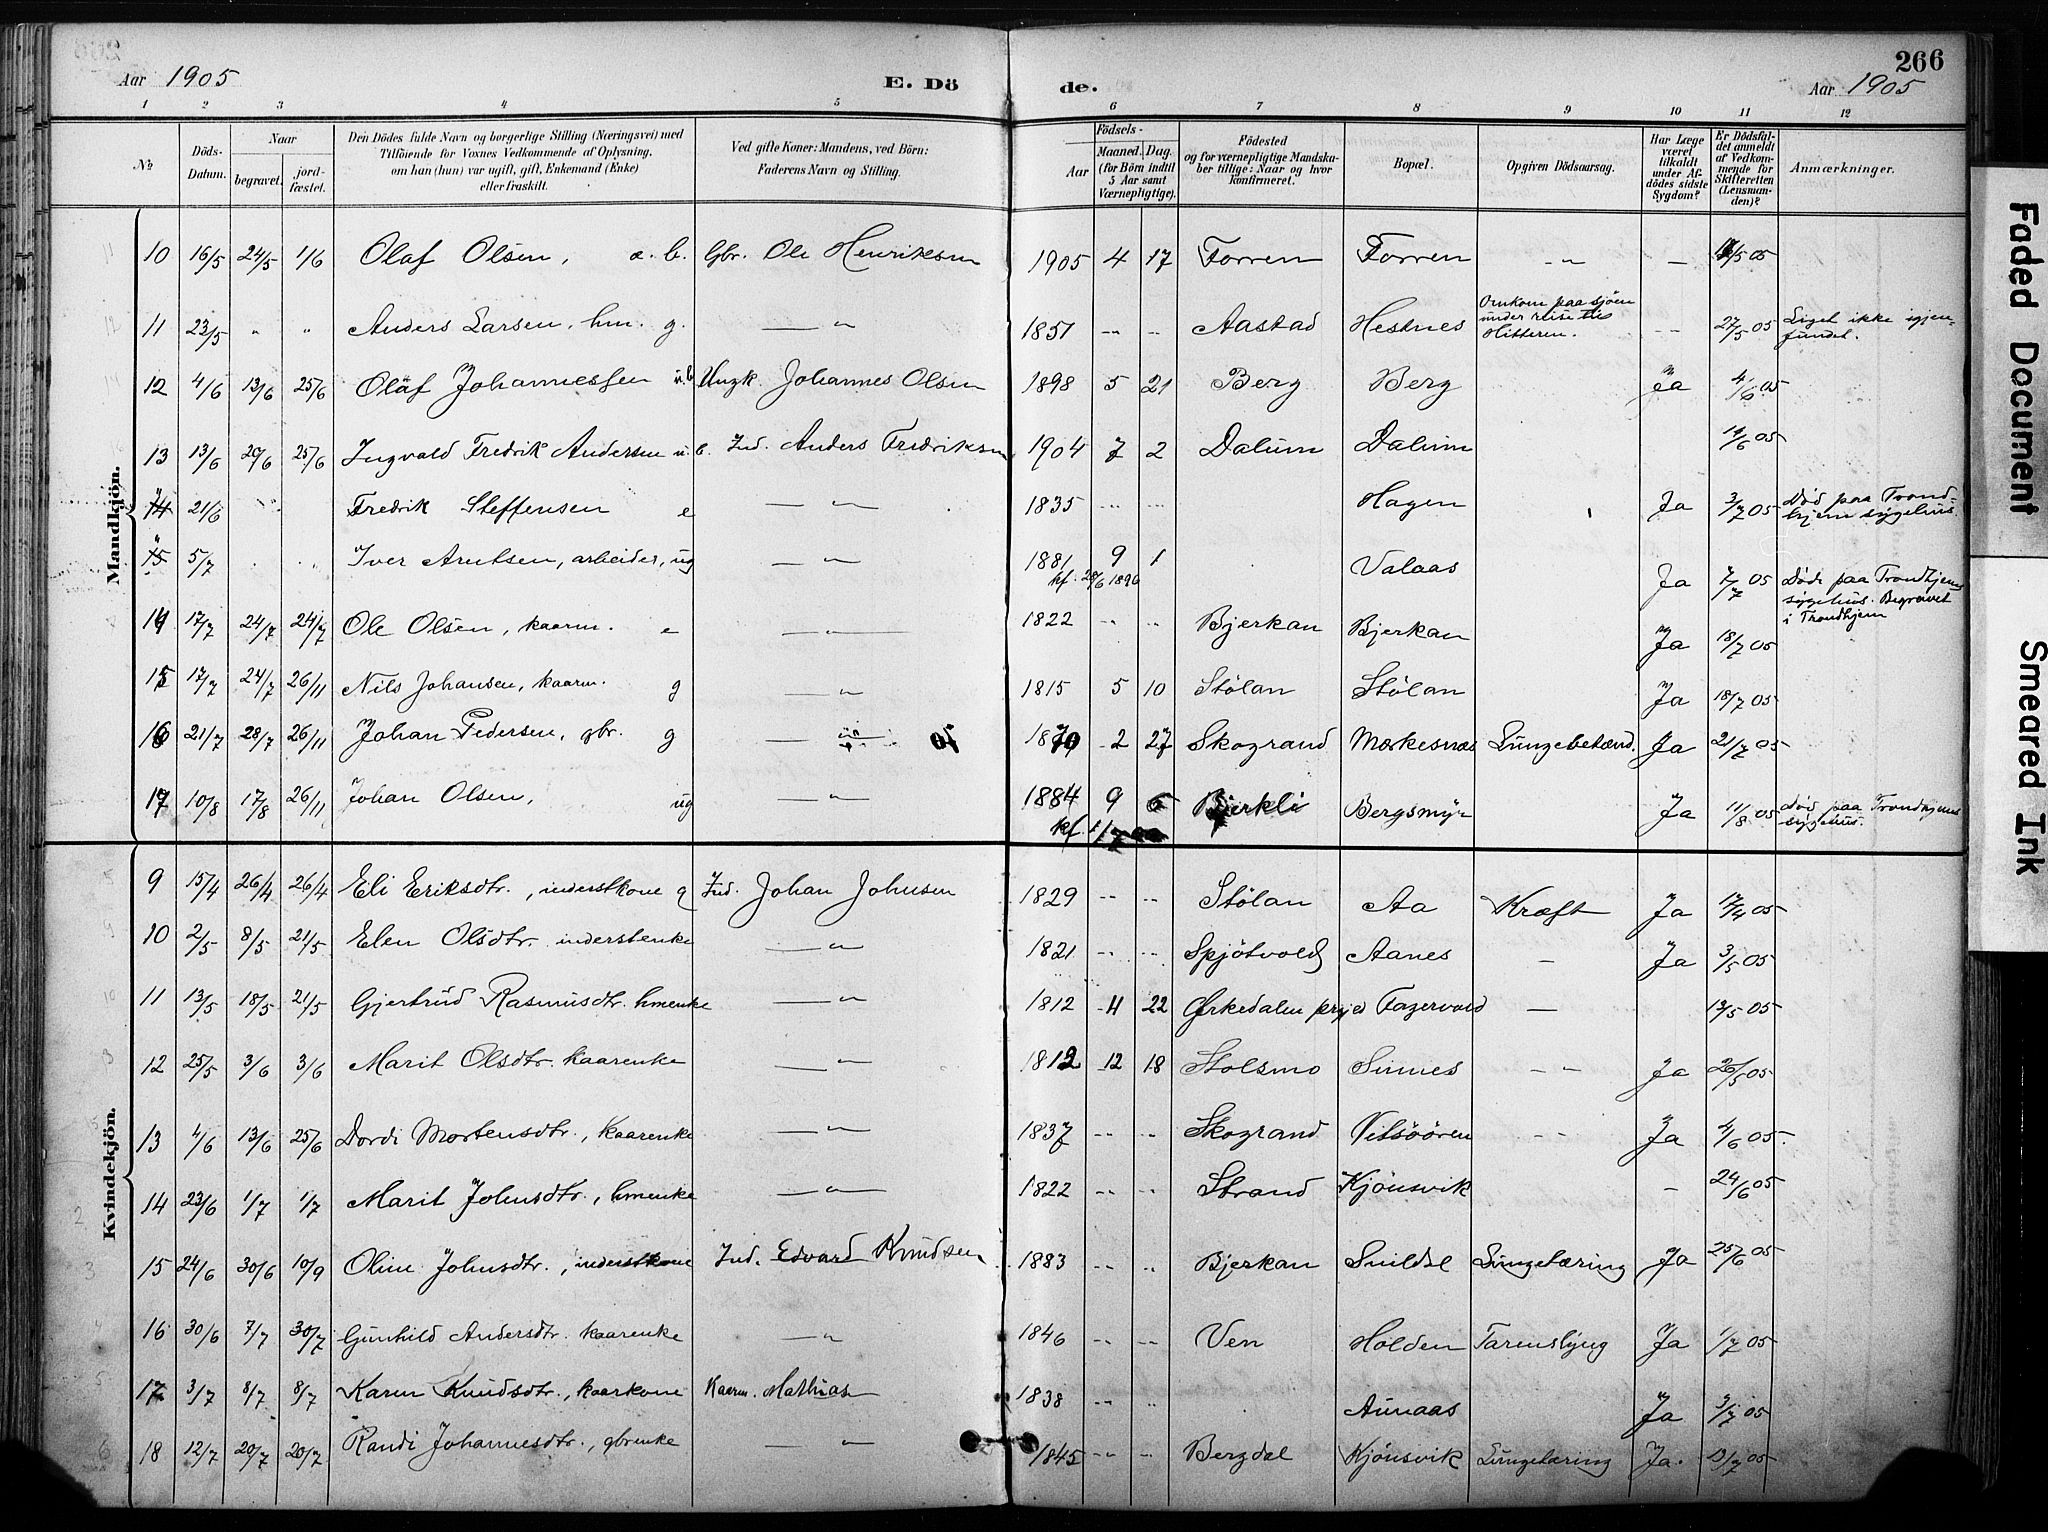 266
Aar 1905 E. Dö de. Aar 1905
1 2 3 4 5 6 7 8 9 10 11 12
No
Döds-Datum.
Naar
begravet. jordfæstet.
Den Dödes fulde Navn og borgerlige Stilling (Næringsvei) med
Tilföiende for Voxnes Vedkommende af Oplysning,
om han (hun) var ugift, gift, Enkemand (Enke)
eller fraskilt.
Ved gifte Koner: Mandens, ved Börn:
Faderens Navn og Stilling.
Födsels-
Aar Maaned. Dag.
(for Börn indtil 5 Aar samt Værnepligtige).
Födested
og for værnepligtige Mandskaber tillige: Naar og hvor konfirmeret.
Bopæl.
Opgiven Dödsaarsag.
Har Læge været tilkaldt under Afdödes sidste Sygdom?
Er Dödsfaldet anmeldt af Vedkommende for Skifteretten (Lensmanden)?
Anmærkninger.
Mandkjön.
10 16/5 24/5 1/6 Olaf Olsen, u. b. Gbr. Ole Henriksen 1905 4 17 Forren Forren — " — — /5 05
11 23/5 " " Anders Larsen, hm. g. — " — 1851 " " Aastad Hestnes Omkom paa sjöen under reise til Hitteren. " 27/5 05 Liget ikke igjenfundet.
12 4/6 13/6 25/6 Olaf Johannessen u.b Ungk. Johannes Olsen 1898 5 21 Berg Berg Ja 4/6 05
13 13/6 20/6 25/6 Ingvald Fredrik Andersen u.b. Ind. Anders Fredriksen 1904 7 2 Dalum Dalum 19/6 05
14 21/6 " " Fredrik Steffensen e — " — 1835 " " Hagen Ja 3/7 05 Död paa Trondhjem sygehus.
15 5/7 " " Iver Arntsen, arbeider, ug — " — 1881 9 1 kf. 28/6 1896 Valaas Ja 7/7 05 Död paa Trondhjems sygehus. Begravet i Trondhjem
14 17/7 24/7 24/7 Ole Olsen, kaarm. e — " — 1822 " " Bjerkan Bjerkan Ja 18/7 05
15 17/7 24/7 26/11 Nils Johansen, kaarm. g — " — 1815 5 10 Stölan Stölan Ja 18/7 05
16 21/7 28/7 26/11 Johan Pedersen, gbr. g — " — 1870 2 27 Skogrand Mærkesnæs Lungebetænd. Ja 21/7 05
17 10/8 17/8 26/11 Johan Olsen, ug — " — 1884 9 6 kf. Bjerkli Bergsmyr Ja 11/8 05 Död paa Trondhjems sygehus.
Kvindekjön.
9 15/4 26/4 26/4 Eli Eriksdtr., inderstkone g Ind. Johan Johnsen 1829 " " Stölan Aa Kræft Ja 17/4 05
10 2/5 8/5 21/5 Elen Olsdtr. inderstenke — " — 1821 " " Spjötvold Aanes — Ja 3/5 05
11 13/5 18/5 21/5 Gjertrud Rasmusdtr. hmenke — " — 1812 4 22 Ørkedalen prgjd Fagervold — 13/5 05
12 25/5 3/6 3/6 Marit Olsdtr. kaarenke — " — 1812 12 18 Stolsmo Sunnes — " Ja 26/5 05
13 4/6 13/6 25/6 Dordi Mortensdtr., kaarenke — " — 1837 " " Skogrand Vitsöören " Ja 4/6 05.
14 23/6 1/7 1/7 Marit Johnsdtr., hmenke — " — 1822 " " Strand Kjönsvik — 24/6 05
15 24/6 30/6 10/9 Oline Johnsdtr., inderstkone Ind. Edvard Knudsen 1883 " " Bjerkan Snildal Lungetæring Ja 25/6 05
16 30/6 7/7 30/7 Gunhild Andersdtr. kaarenke — " — 1846 " " Ven Holden Tarenslyng Ja 1/7 05
17 3/7 8/7 8/7 Karen Knudsdtr., kaarkone Kaarm. Mathias 1838 " " Aunaas Ja 3/7 05
18 12/7 20/7 20/7 Randi Johannesdtr., gbrenke — " — 1845 " " Bergdal Kjönsvik Lungetæring Ja. 13/7 05
Faded Document
Smeared Ink